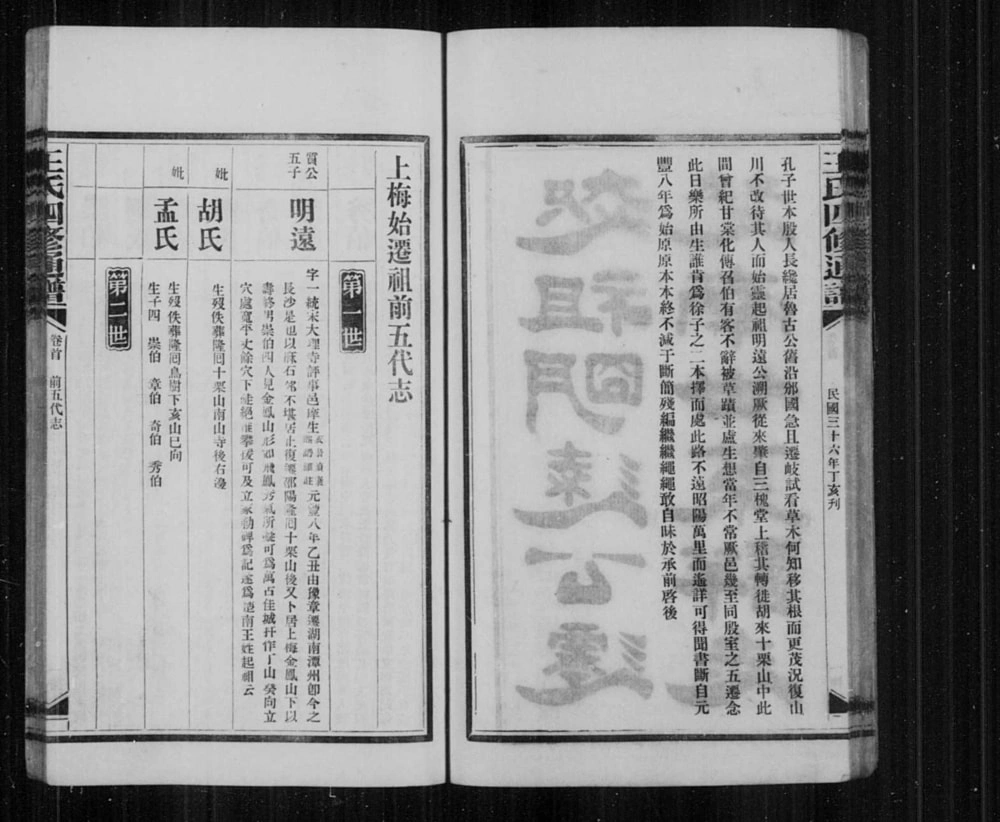 王氏四修通譜
民國三十六年丁亥刋
孔子世本殷人長纔居魯古公舊沿邠國急且遷岐試看草木何知移其根而更茂況復山
川不改待其人而始靈起祖明遠公溯厥從來肇自三槐堂上稽其轉徙胡來十栗山中此
間曾紀甘棠化傳召伯有客不辭被草蹟並盧生想當年不常厥邑幾至同殷室之五遷念
此日樂所由生誰肯爲徐子之二本擇而處此路不遠昭陽萬里而遙詳可得聞書斷自元
豐八年爲始原原本本終不滅于斷簡殘編繼繼繩繩敢自昧於承前啓後
上梅始遷祖前五代志
第一世
賀公
五子
明遠
字一統宋大理寺評事邑庠生元豐八年乙丑由豫章遷湖南潭州卽今之
長沙是也以麻石不堪居止復遷邵陽隆囘十栗山後又卜居上梅金鳳山下以
壽終男崇伯四人見金鳳山形如飛鳳秀氣所鍾可爲萬古佳城扦作丁山癸向立
穴處寬平丈餘穴下徒絕難攀援可及立冢勒碑爲記遂爲楚南王姓起祖云
妣
胡氏
生歿佚葬隆囘十栗山南山寺後右邊
妣
孟氏
生歿佚葬隆囘鳥樹下亥山巳向
生子四 崇伯 章伯 奇伯 秀伯
第二世
王氏四修通譜
卷首 前五代志